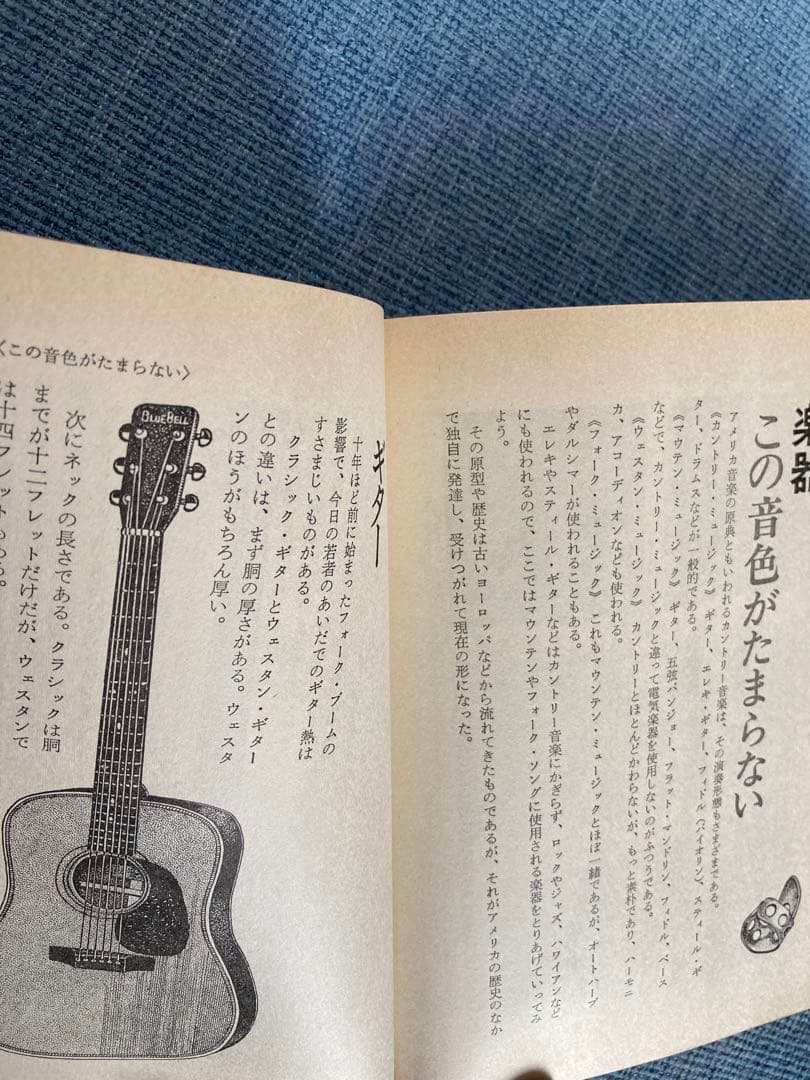 楽器
この音色がたまらない
アメリカ音楽の原典ともいわれるカントリー音楽は、その演奏形態もさまざまである。
《カントリー・ミュージック》 ギター、エレキ・ギター、フィドル（バイオリン）、スティール・ギ
ター、ドラムスなどが一般的である。
《マウテン・ミュージック》 ギター、五弦バンジョー、フラット・マンドリン、フィドル、ベース
などで、カントリー・ミュージックと違って電気楽器を使用しないのがふつうである。
《ウェスタン・ミュージック》 カントリーとほとんどかわらないが、もっと素朴であり、ハーモニ
カ、アコーディオンなども使われる。
《フォーク・ミュージック》 これもマウンテン・ミュージックとほぼ一緒であるが、オートハープ
やダルシマーが使われることもある。
エレキやスティール・ギターなどはカントリー音楽にかぎらず、ロックやジャズ、ハワイアンなど
にも使われるので、ここではマウンテンやフォーク・ソングに使用される楽器をとりあげていってみ
よう。
その原型や歴史は古いヨーロッパなどから流れてきたものであるが、それがアメリカの歴史のなか
で独自に発達し、受けつがれて現在の形になった。
〈この音色がたまらない〉
ギター
十年ほど前に始まったフォーク・ブームの
影響で、今日の若者のあいだでのギター熱は
すさまじいものがある。
クラシック・ギターとウェスタン・ギター
との違いは、まず胴の厚さがある。ウェスタ
ンのほうがもちろん厚い。
BLUEBELL
次にネックの長さである。クラシックは胴
までが十二フレットだけだが、ウェスタンで
は十四フレットもある。